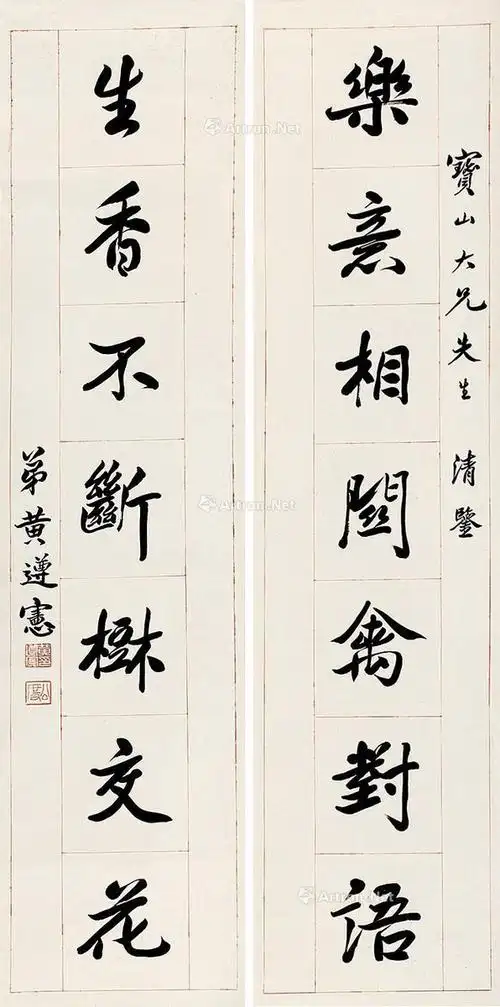 寶山大兄先生 清鑒
樂意相關禽對語
生香不斷樹交花
弟黃遵憲
公度
Artron.Net
Artron.Net
Artron.Net
Artron.Net